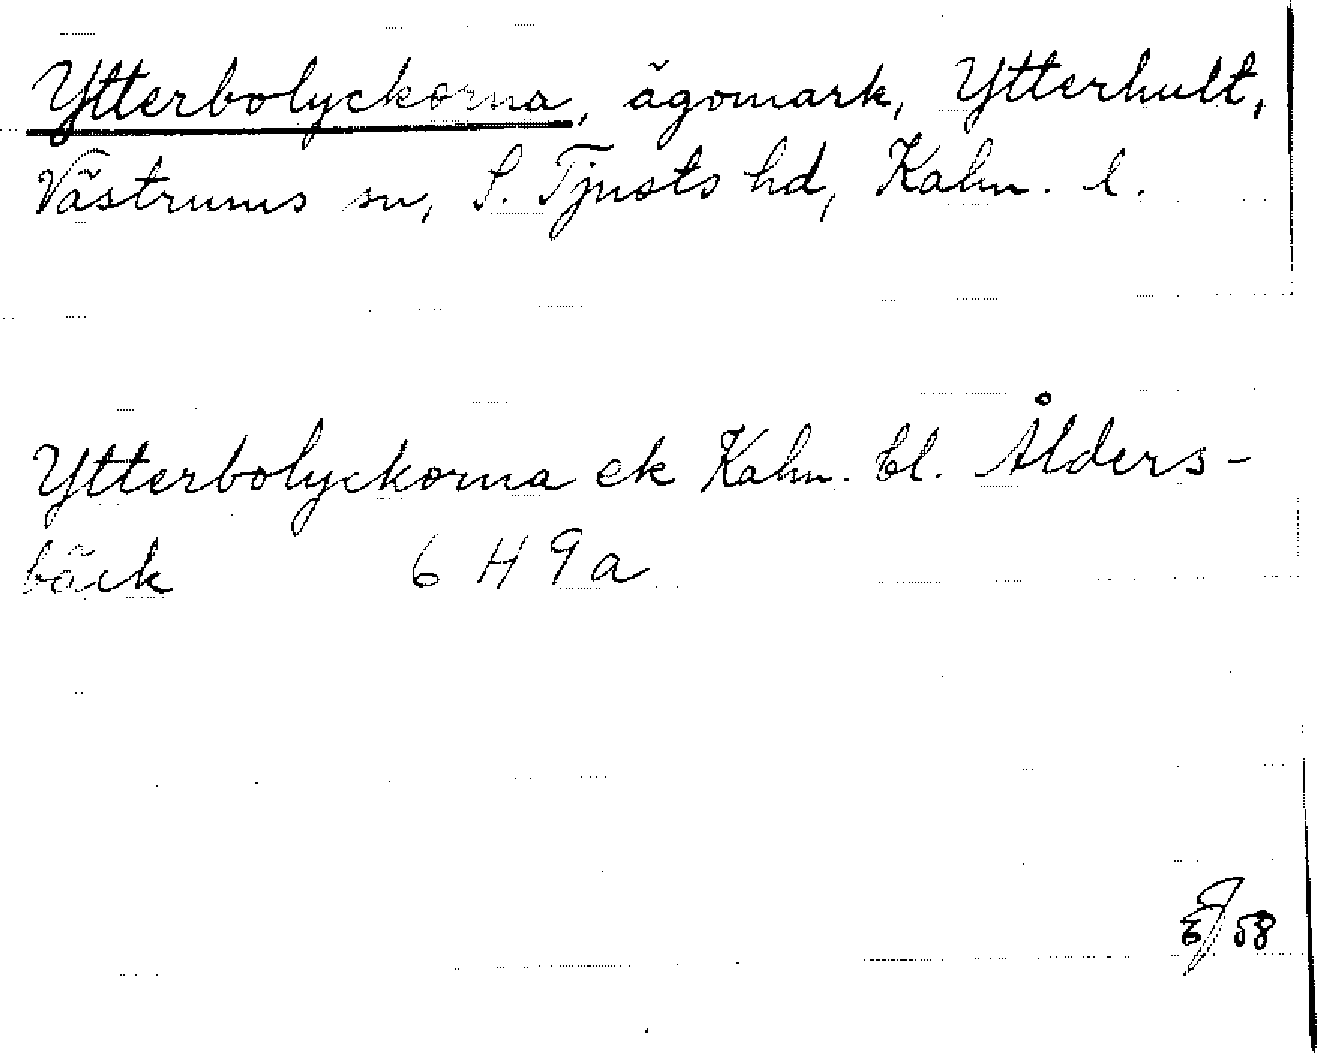 Ytterbolyckorna, ägomark, Ytterhult,
Västrums sn, S. Tjusts hd, Kalm. l.
Ytterbolyckorna ek Kalm. bl. Ålders-
bäck 6 H 9 a
58